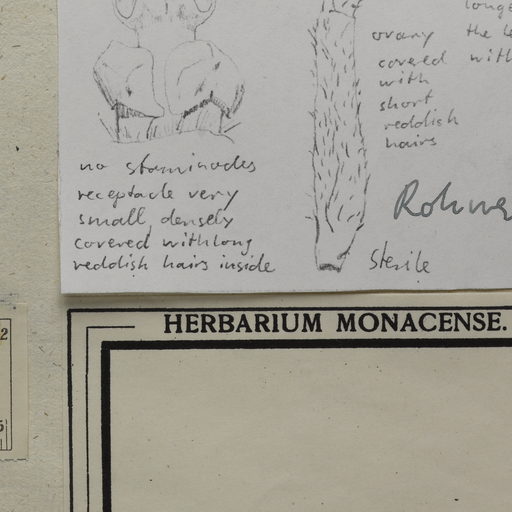 no staminodes
receptacle very
small, densely
covered with long
reddish hairs inside
ovary
covered
with
short
reddish
hairs
Sterile
HERBARIUM MONACENSE.
2
5